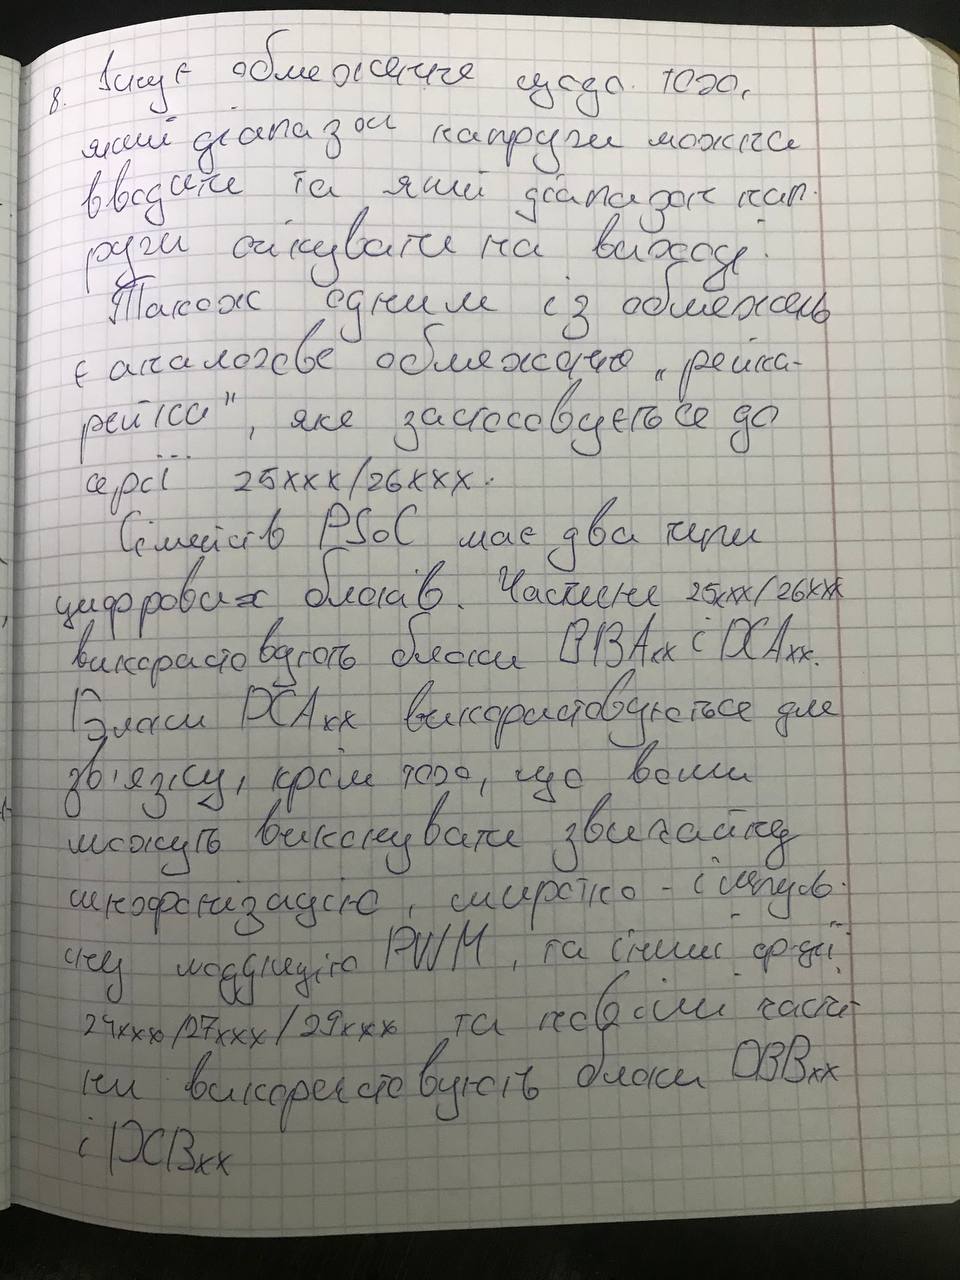 8. Існує обмеження щодо того,
який діапазон напруги можна
вводити та який діапазон нап-
руги очікувати на виході.
Також одним із обмежень
є аналогове обмеження "рейка-
рейка", яке застосовується до
серії 25xxx/26xxx.
Сімейств PSoC має два типи
цифрових блоків. Частини 25xxx/26xxx
використовують блоки DBAxx і DCAxx.
Блоки DCAxx використовуються для
зв'язку, крім того, що вони
можуть виконувати звичайну
синхронізацію, широтно-імпуль-
сну модуляцію PWM, та інші ф-ції
24xxx/27xxx/29xxx та новіші части-
ни використовують блоки DBBxx
і DCBxx